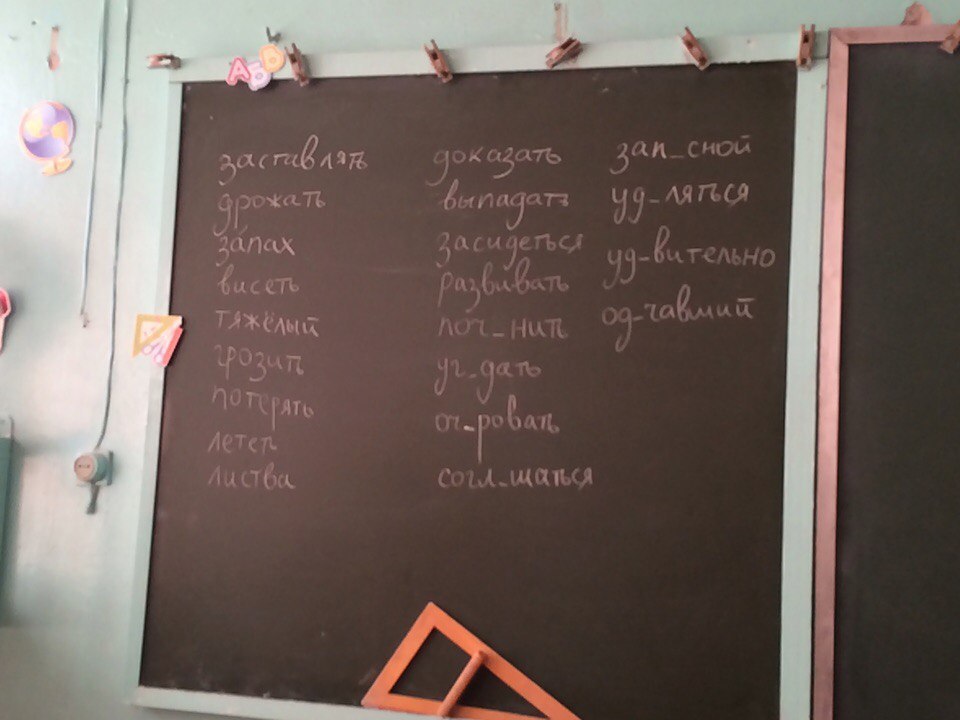 заставлять
дрожать
за́пах
висеть
тяжёлый
грозить
потерять
лететь
листва
доказать
выпадать
засидеться
развивать
поч_нить
уг_дать
оч_ровать
согл_шаться
зап_сной
уд_ляться
уд_вительно
од_чавший
АБО